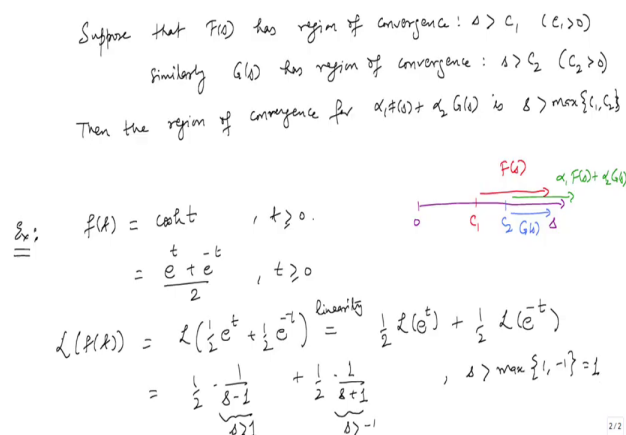 Suppose that F(s) has region of convergence : s > C₁ (C₁>0)
Similarly G(s) has region of convergence : s > C₂ (C₂>0)
Then the region of convergence for α₁F(s) + α₂ G(s) is s > max{C₁,C₂}
F(s)
α₁ F(s) + α₂ G(s)
0 C₁ C₂ G(s) s
Ex: f(t) = cosh t , t ≥ 0.
= (e^t + e^-t)/2 , t ≥ 0
L(f(t)) = L(½ e^t + ½ e^-t) linearity = ½ L(e^t) + ½ L(e^-t)
= ½ · 1/(s-1) + ½ · 1/(s+1) , s > max{1, -1} = 1
s>1 s>-1
2/2